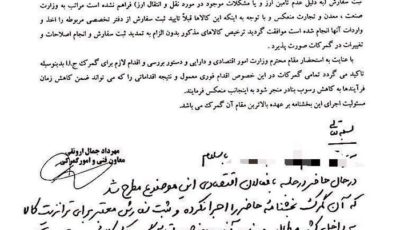 ثبت سفارش (به دلیل عدم تامین ارز و یا مشکلات موجود در مورد نقل و انتقال ارز) فراهم نشده است مراتب به وزارت
صنعت ، معدن و تجارت منعکس و با توجه به اینکه این کالاها قبلاً تأیید ثبت سفارش از دفتر تخصصی مربوطه را اخذ و
واردات آنها انجام شده است موافقت گردید ترخیص کالاهای مذکور بدون الزام به تمدید ثبت سفارش و انجام اصلاحات و
تغییرات در گمرکات صورت پذیرد .
با عنایت به استحضار مقام محترم وزارت امور اقتصادی و دارایی و دستور بررسی و اقدام لازم برای گمرک ج.ا.ا بدینوسیله
تاکید می گردد تمامی گمرکات در این خصوص اقدام فوری معمول و نتیجه اقداماتی را که می تواند ضمن کاهش زمان
فرآیندها به کاهش رسوب بنادر منجر شود به اینجانب منعکس فرمایند.
مسئولیت اجرای این بخشنامه بر عهده بالاترین مقام آن گمرک می باشد.
مهرداد جمال ارونقی
معاون فنی و امور گمرکی
با سلام
در حال حاضر در جلسه با فعالان اقتصادی این موضوع مطرح شد
که آن گمرک بخشنامه حاضر را اجرا نکرده و ثبت سفارش معتبر برای ترانزیت کالا